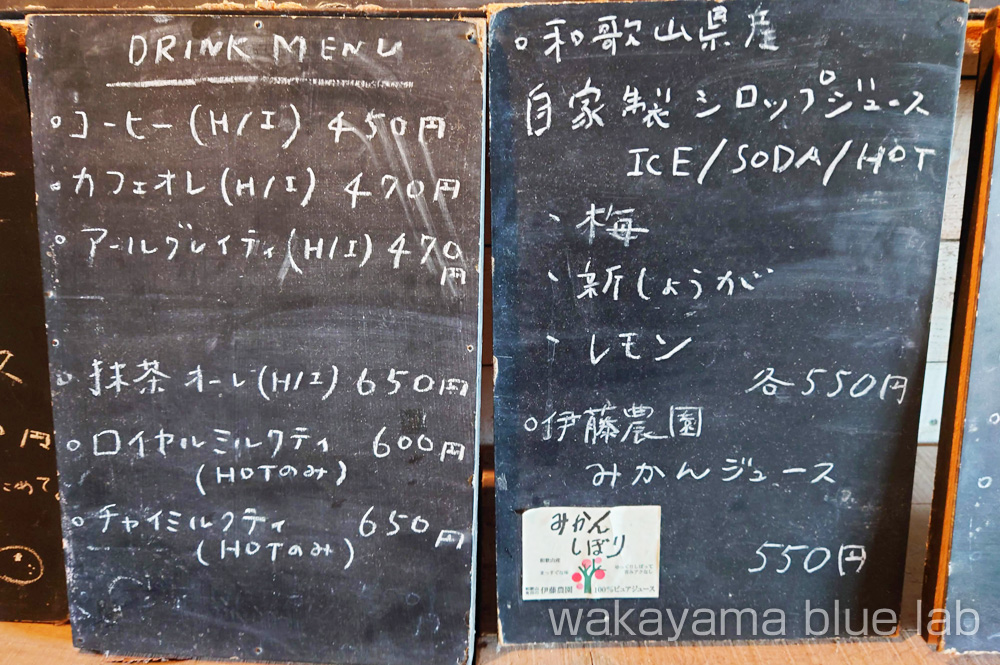 DRINK MENU
。コーヒー(H/I) 450円
。カフェオレ(H/I) 470円
。アールグレイティ(H/I) 470
円
。抹茶オーレ(H/I) 650円
。ロイヤルミルクティ 600円
(HOTのみ)
。チャイミルクティ 650円
(HOTのみ)
。和歌山県産
自家製シロップジュース
ICE/SODA/HOT
、梅
、新しょうが
、レモン
各550円
。伊藤農園
みかんジュース
みかん
しぼり
伊藤農園 100%ピュアジュース
550円
wakayama blue lab